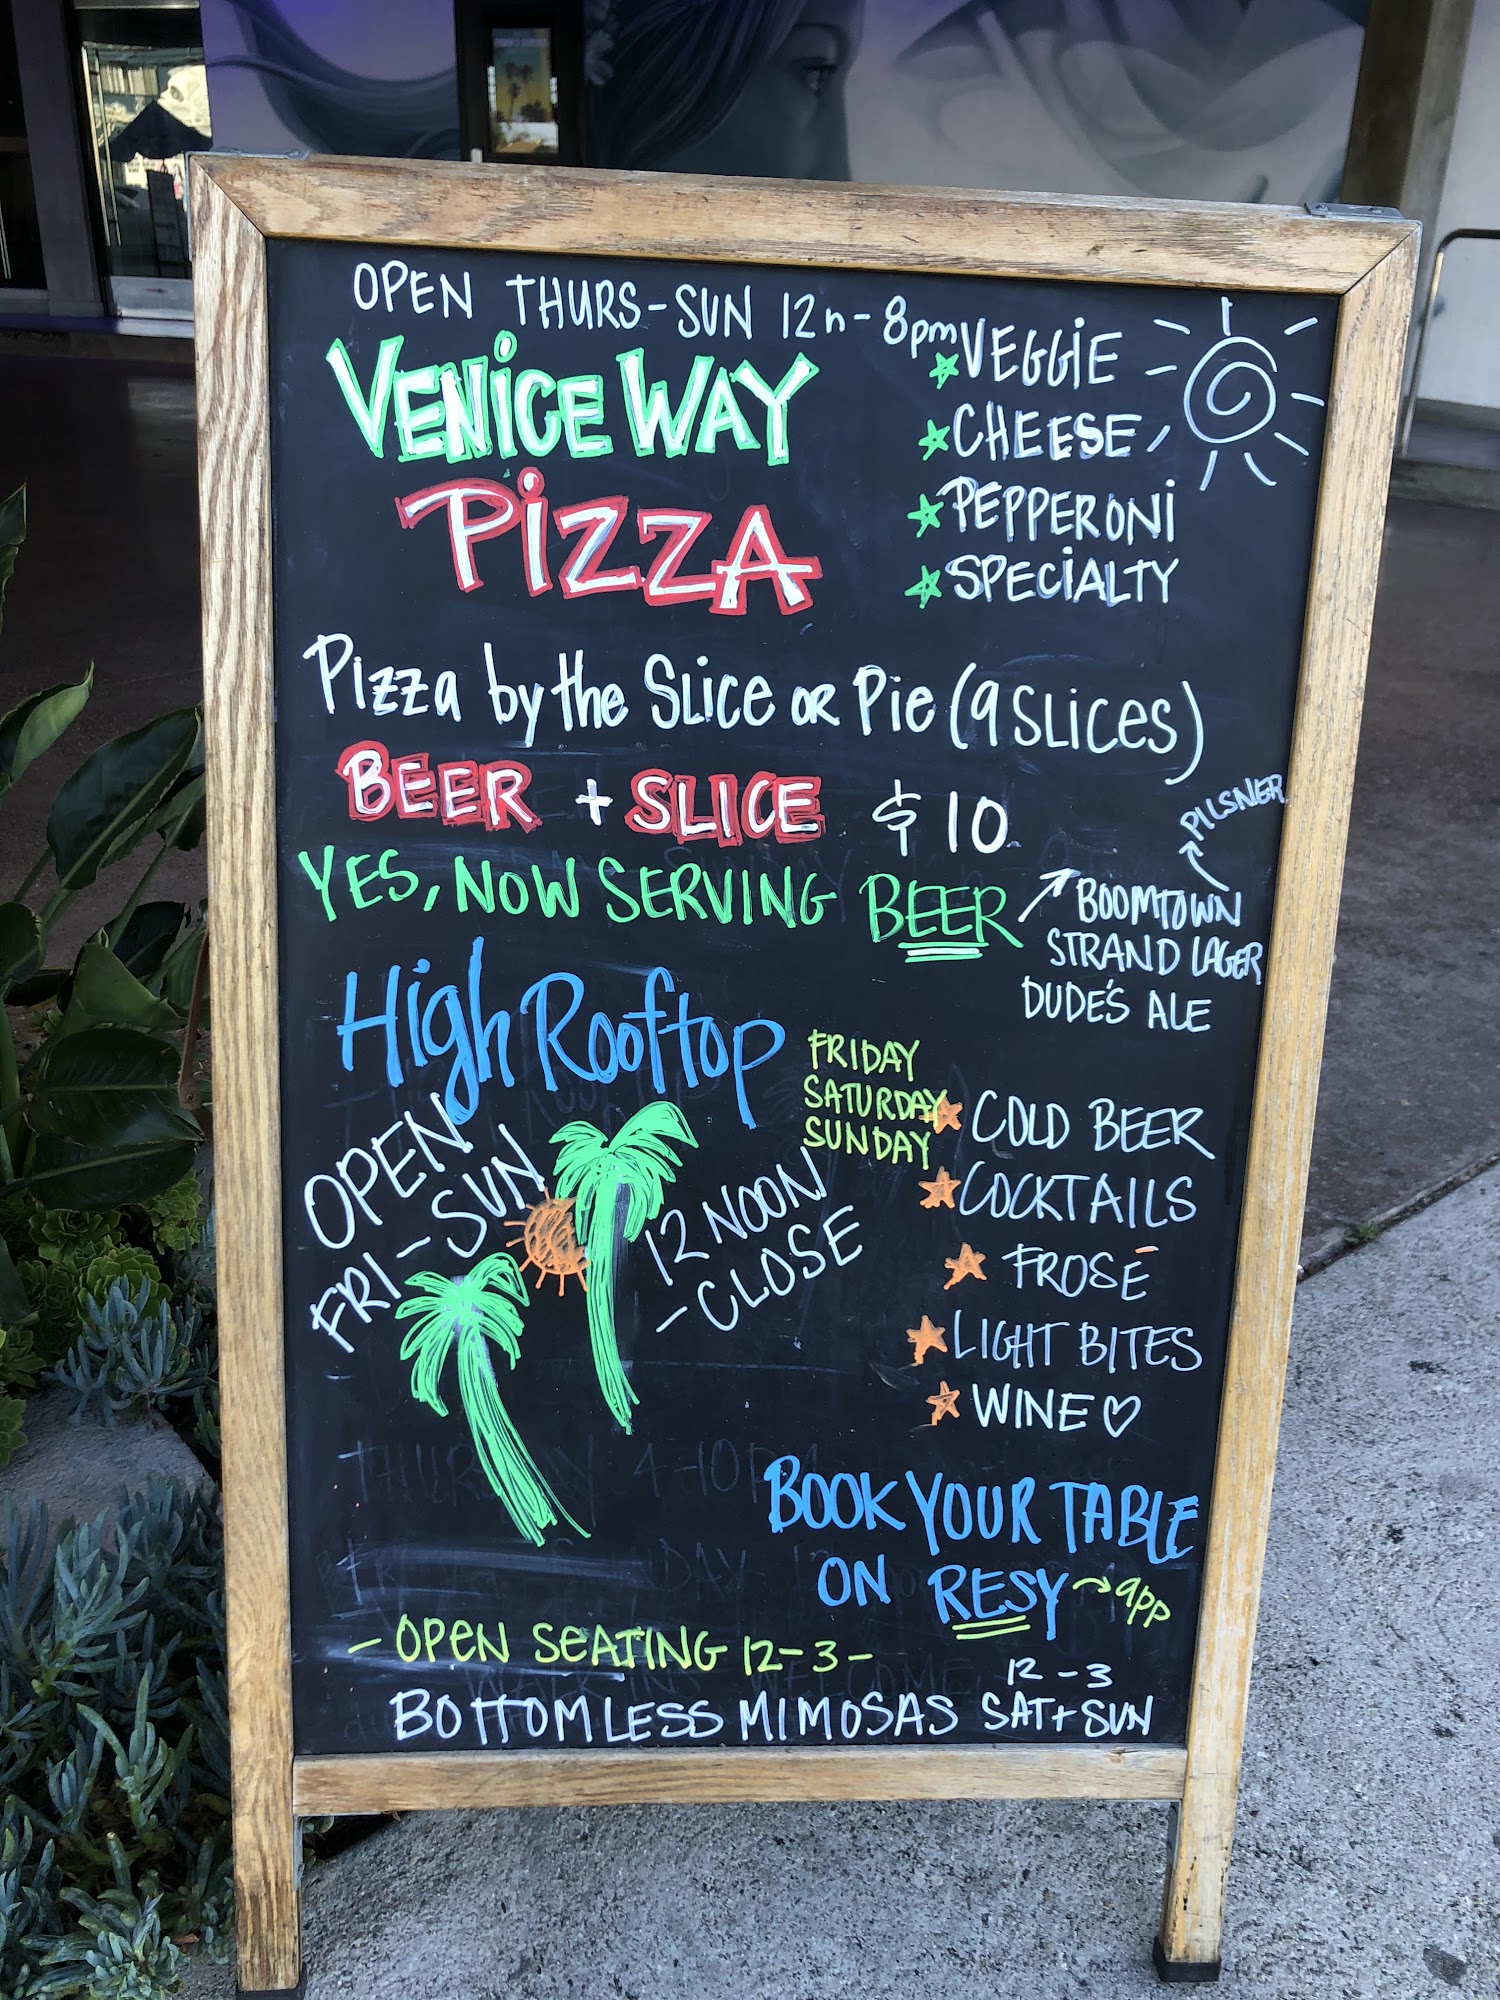 OPEN THURS-SUN 12n-8pm
VENICE WAY
PIZZA
VEGGIE
CHEESE
PEPPERONI
SPECIALTY
Pizza by the Slice or Pie (9 SLICES)
BEER + SLICE $10
YES, NOW SERVING BEER
PILSNER
BOOMTOWN
STRAND LAGER
DUDE'S ALE
High Rooftop
FRIDAY
SATURDAY
SUNDAY
OPEN
FRI-SUN
12 NOON
-CLOSE
COLD BEER
COCKTAILS
FROSÉ
LIGHT BITES
WINE♡
BOOK YOUR TABLE
ON RESY → app
- OPEN SEATING 12-3 -
12-3
BOTTOMLESS MIMOSAS SAT+SUN